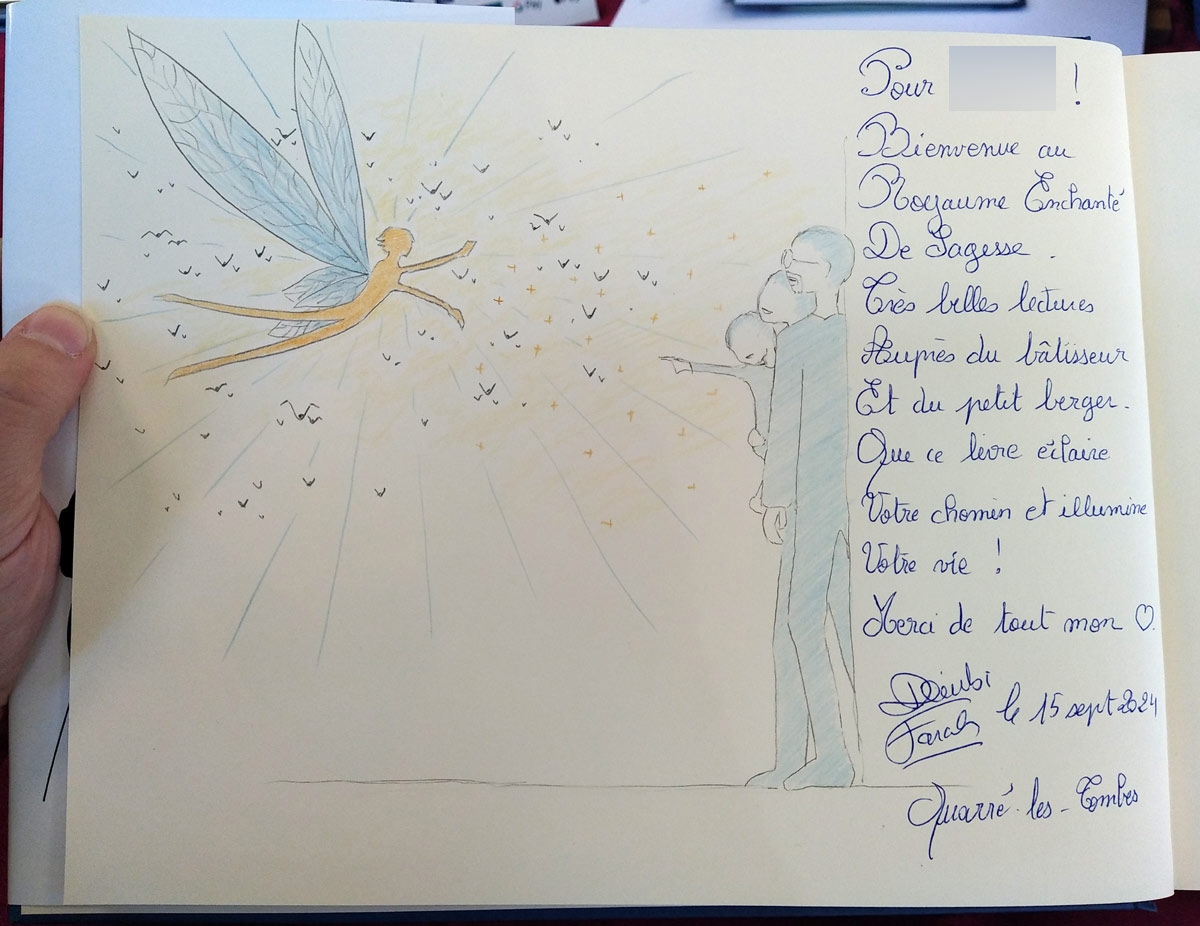 Pour !
Bienvenue au
Royaume Enchanté
De Sagesse.
Très belles lectures
Auprès du bâtisseur
Et du petit berger.
Que ce livre éclaire
Votre chemin et illumine
Votre vie !
Merci de tout mon ♡.
Farah le 15 sept 2024
Quarré-les-Tombes